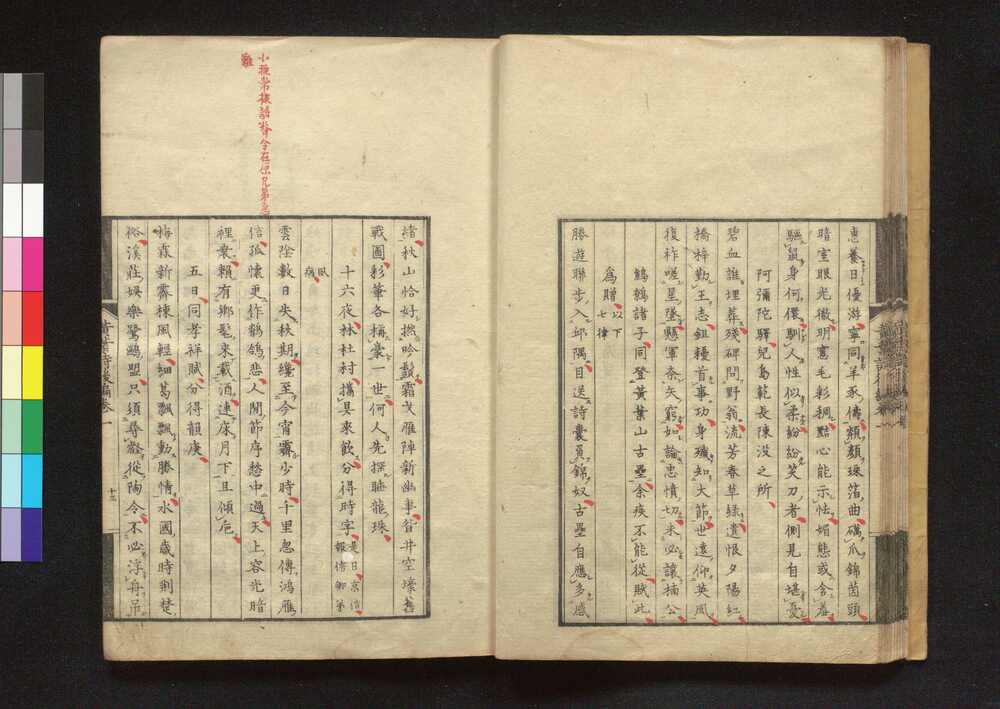 惠養日優游寧同羊豕儔頰顏珠箔曲礪爪錦茵頭
暗室眼光徹明窓毛彩稠點心能示怯媚態或含羞
驅鼠身何儇馴人性似柔紛紛笑刀者側見自堪憂
阿彌陀驛兒島範長陳没之所
碧血誰埋葬殘碑問野翁流芳春草綠遺恨夕陽紅
橋梓勤王志鈕耰首事功身殲知大節世遠仰英風
復柞嗟星墜懸軍奈矢窮如論忠憤切未必讓楠公
鷦鷯諸子同登黃葉山古壘余疾不能從賦此
爲贈以下七律
勝遊聯步入邱隅目送詩囊員錦奴古壘自應多感
緒秋山恰好撚吟鬚霜戈雁陣新幽事眢井空壕舊
戰圖彩筆各稱囊一世何人先探睡龍珠
十六夜林杜村攜具來飲分得時字是日京信報脩卿弟
臥病
雲陰數日失秋期纔至今宵霽少時千里忽傳鴻雁
信孤懷更作鶺鴒悲人間節序愁中過天上容光暗
裡衰賴有鄉髦來載酒連床月下且傾卮
五日同孝祥賦分得韻庚
梅霖新霽棟風輕細葛飄飄動勝情水國歲時荆楚
俗溪莊娛樂鷺鷗盟只須尋壑從陶令不必浮舟吊
十三